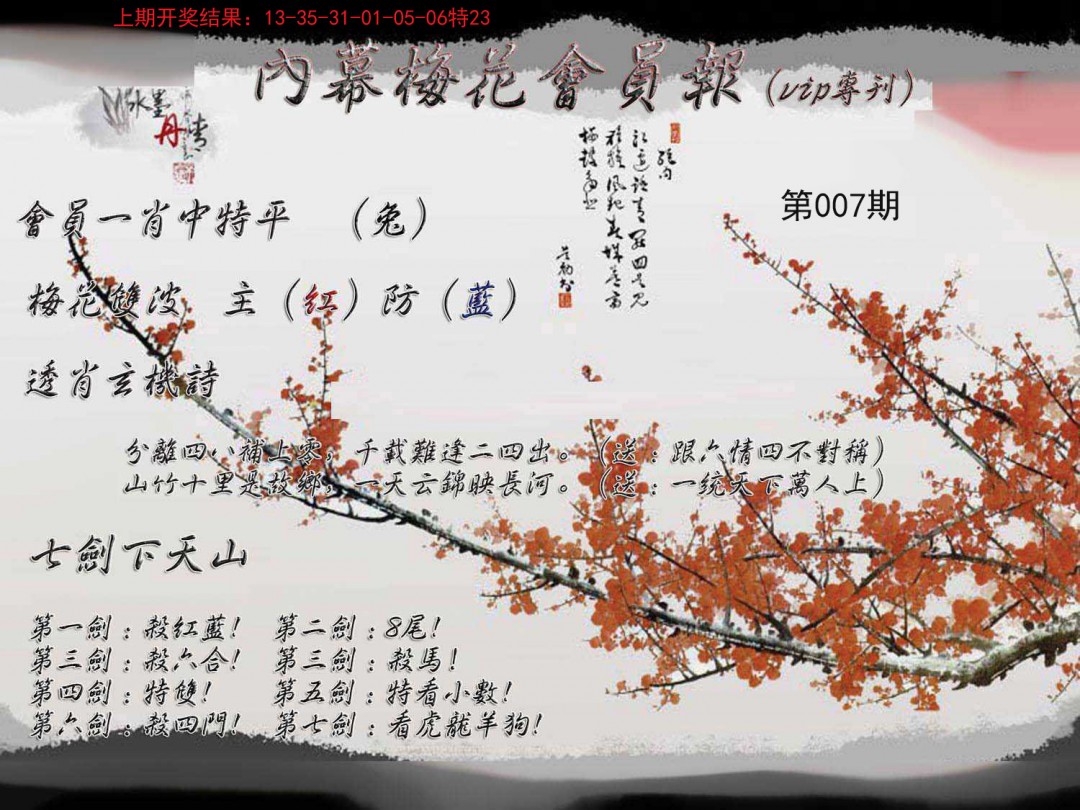 上期开奖结果：13-35-31-01-05-06特23
內幕梅花會員報（vip專刊）
水墨
丹青
第007期
會員一肖中特平　（兔）
梅花雙波　主（红）防（藍）
透肖玄機詩
分離四八補上零，千載難逢二四出。（送：跟六情四不對稱）
山竹十里是故鄉，一天云錦映長河。（送：一统天下萬人上）
七劍下天山
第一劍：殺红藍！　第二劍：8尾！
第三劍：殺六合！　第三劍：殺馬！
第四劍：特雙！　第五劍：特看小數！
第六劍：殺四門！　第七劍：看虎龍羊狗！